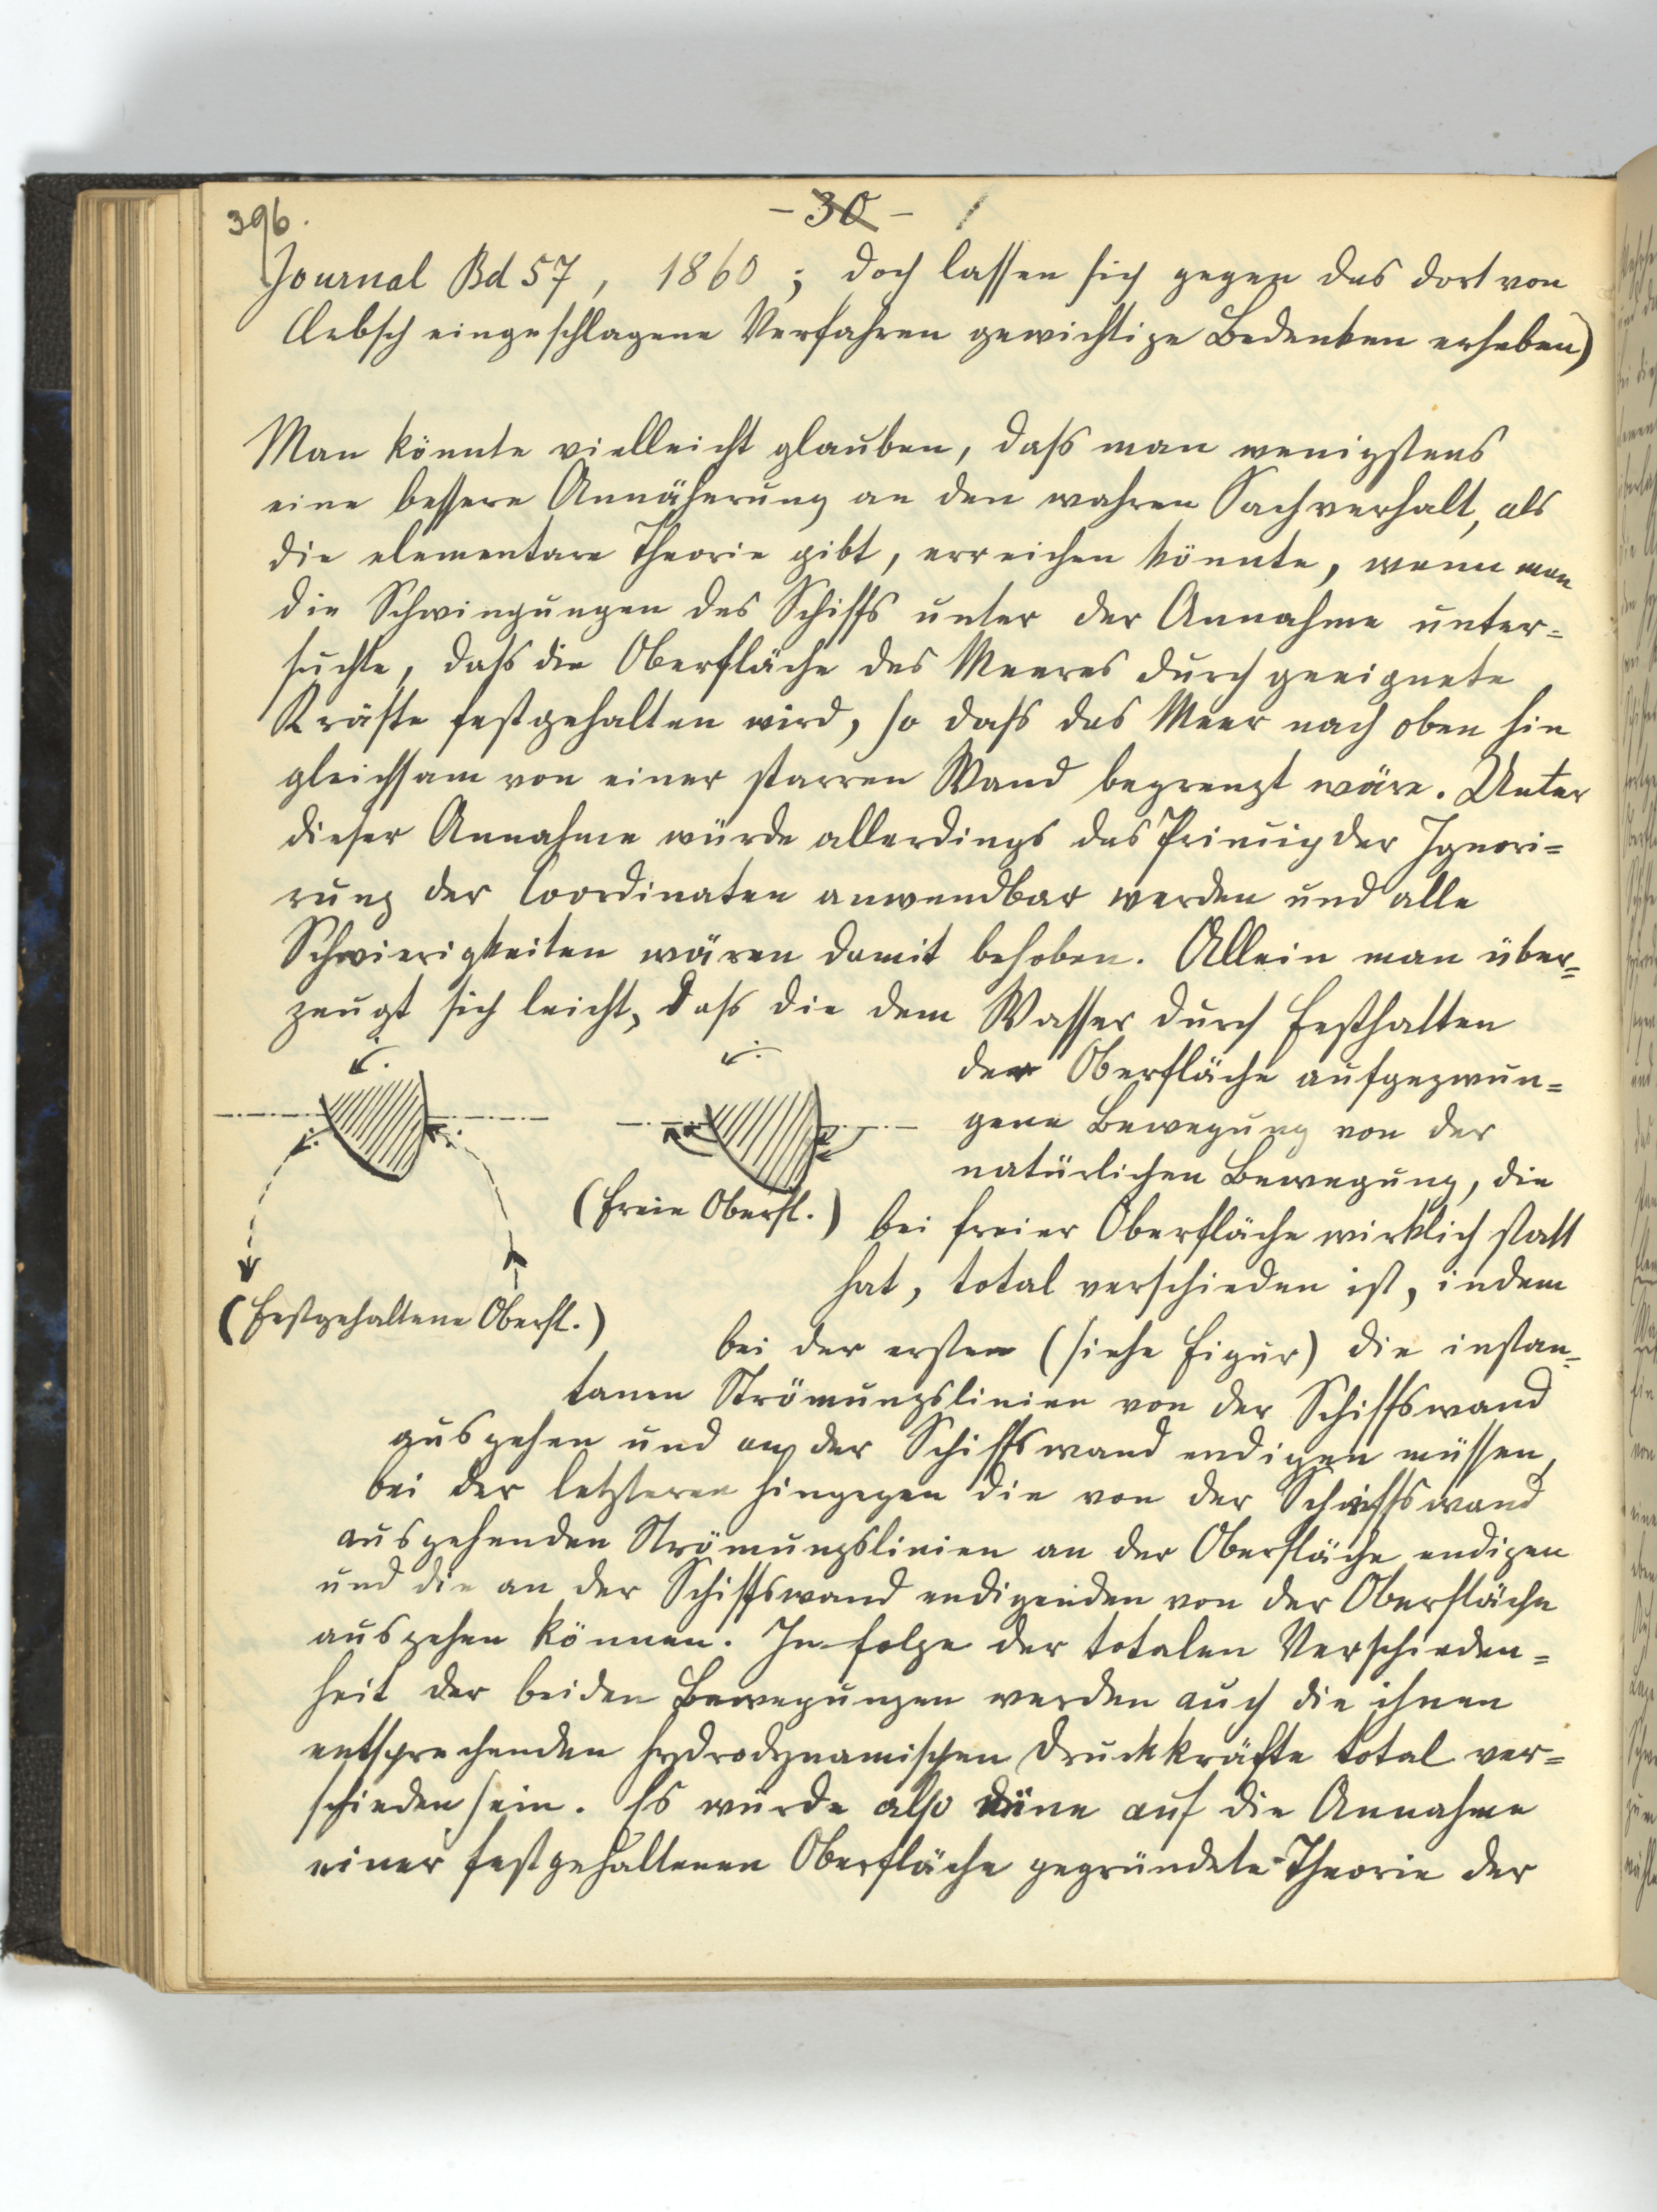 396.
- 30 -
Journal Bd 57, 1860; doch lassen sich gegen das dort von
Clebsch eingeschlagene Verfahren gewichtige Bedenken erheben)
Man könnte vielleicht glauben, dass man wenigstens
eine bessere Annäherung an den wahren Sachverhalt, als
die elementare Theorie gibt, erreichen könnte, wenn man
die Schwingungen des Schiffs unter der Annahme unter=
suchte, dass die Oberfläche des Meeres durch geeignete
Kräfte festgehalten wird, so dass das Meer nach oben hin
gleichsam von einer starren Wand begrenzt wäre. Unter
dieser Annahme würde allerdings das Princip der Ignori=
rung der Coordinaten anwendbar werden und alle
Schwierigkeiten wären damit behoben. Allein man über=
zeugt sich leicht, dass die dem Wasser durch Festhalten
der Oberfläche aufgezwun=
gene Bewegung von der
natürlichen Bewegung, die
(Freie Oberfl.)
bei freier Oberfläche wirklich statt
hat, total verschieden ist, indem
(Festgehaltene Oberfl.)
bei der ersten (siehe Figur) die instan=
tanen Strömungslinien von der Schiffswand
ausgehen und an der Schiffswand endigen müssen,
bei der letzteren hingegen die von der Schiffswand
ausgehenden Strömungslinien an der Oberfläche endigen
und die an der Schiffswand endigenden von der Oberfläche
ausgehen können. In folge der totalen Verschieden=
heit der beiden Bewegungen werden auch die ihnen
entsprechenden hydrodynamischen Druckkräfte total ver=
schieden sein. Es würde also eine auf die Annahme
einer festgehaltenen Oberfläche gegründete Theorie der